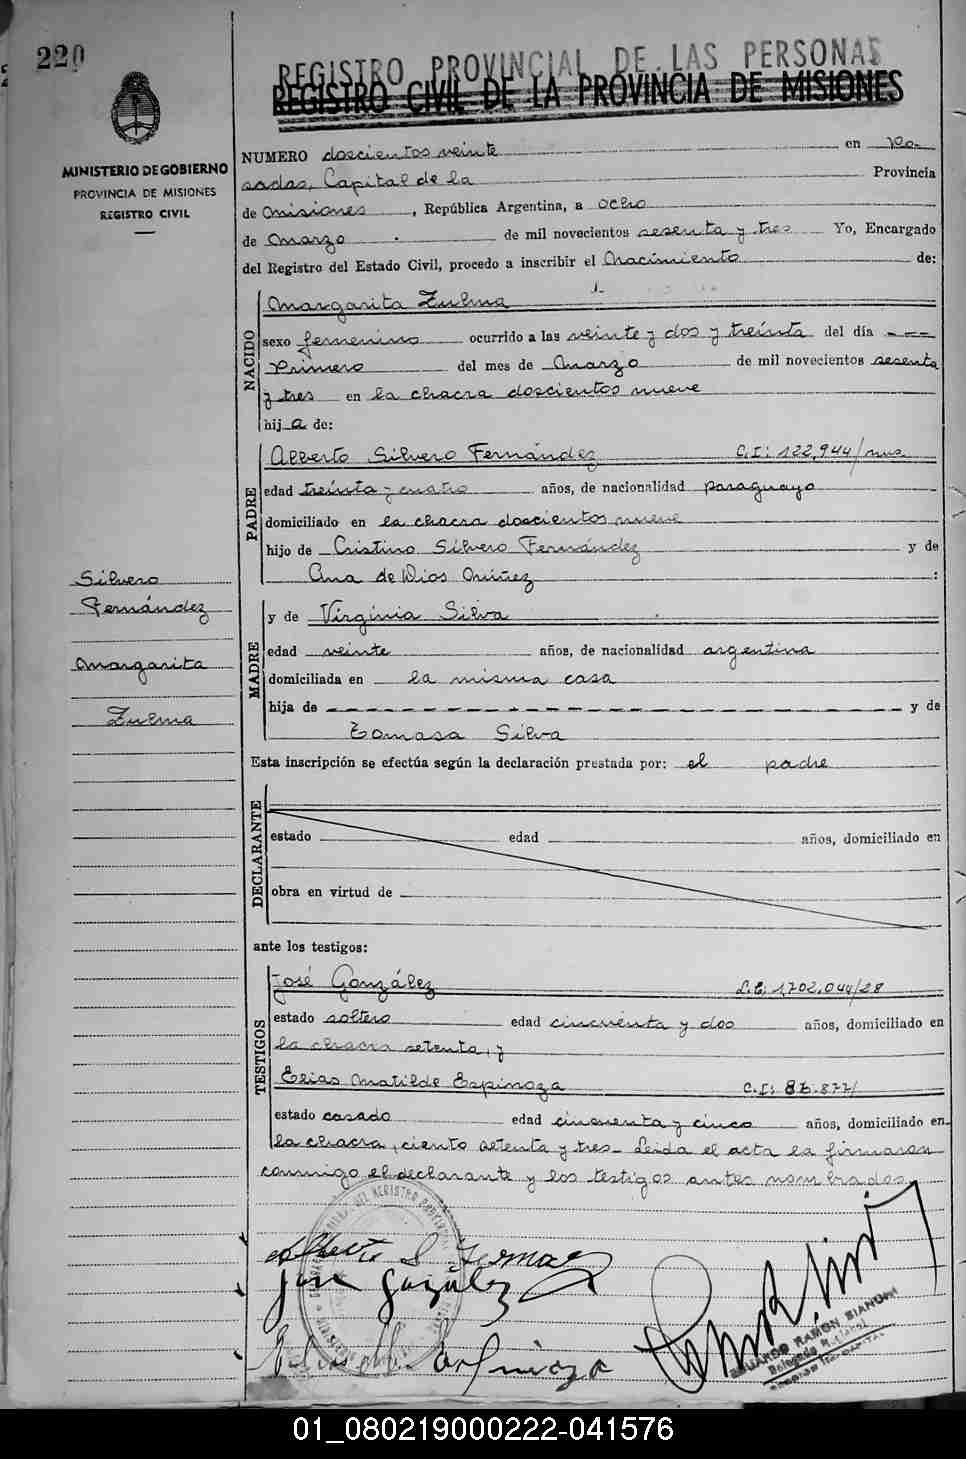 220
REGISTRO PROVINCIAL DE LAS PERSONAS
REGISTRO CIVIL DE LA PROVINCIA DE MISIONES
MINISTERIO DE GOBIERNO
PROVINCIA DE MISIONES
REGISTRO CIVIL
NUMERO doscientos veinte en Po-
sadas, Capital de la Provincia
de Misiones, República Argentina, a ocho
de Marzo de mil novecientos sesenta y tres Yo, Encargado
del Registro del Estado Civil, procedo a inscribir el Nacimiento de:
NACIDO
Margarita Zulma
sexo femenino ocurrido a las veinte y dos y treinta del día ---
Primero del mes de Marzo de mil novecientos sesenta
y tres en la chacra doscientos nueve
hija de:
PADRE
Alberto Silvero Fernández C.I: 122.944/mns
edad treinta y cuatro años, de nacionalidad paraguayo
domiciliado en la chacra doscientos nueve
hijo de Cristino Silvero Fernández y de
Ana de Dios Núñez :
Silvero
Fernández
Margarita
Zulma
MADRE
y de Virginia Silva
edad veinte años, de nacionalidad argentina
domiciliada en la misma casa
hija de - - - - - - - - - - - - - - - - - - - - y de
Tomasa Silva
Esta inscripción se efectúa según la declaración prestada por: el padre
DECLARANTE
estado edad años, domiciliado en
obra en virtud de
ante los testigos:
TESTIGOS
José González L.E; 1.702.044/28
estado soltero edad cincuenta y dos años, domiciliado en
la chacra setenta, y
Elias Matilde Espinoza C.I: 86.877/
estado casado edad cincuenta y cinco años, domiciliado en
la chacra, ciento setenta y tres- Leída el acta la firmaron
conmigo el declarante y los testigos antes nombrados.
Alberto S Fernandez
jose González
Elias M. Espinoza
EDUARDO RAMON BIANCHI
Delegado Regional
01_080219000222-041576